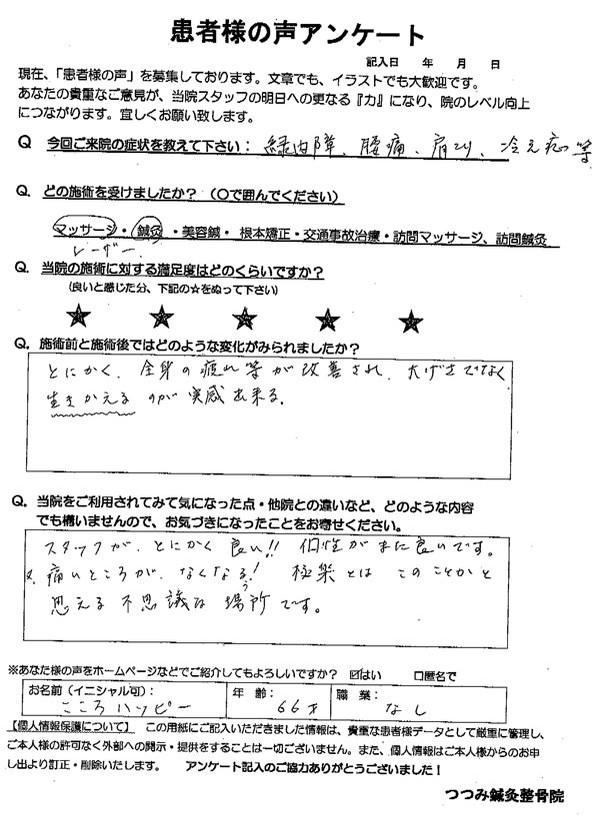 患者様の声アンケート
記入日　年　月　日
現在、「患者様の声」を募集しております。文章でも、イラストでも大歓迎です。
あなたの貴重なご意見が、当院スタッフの明日への更なる『力』になり、院のレベル向上
につながります。宜しくお願い致します。
Q 今回ご来院の症状を教えて下さい： 緑内障、腰痛、肩こり、冷え症等
Q. どの施術を受けましたか？（〇で囲んでください）
マッサージ・鍼灸・美容鍼・根本矯正・交通事故治療・訪問マッサージ、訪問鍼灸
レーザー
Q. 当院の施術に対する満足度はどのくらいですか？
（良いと感じた分、下記の☆をぬって下さい）
★ ★ ★ ★ ★
Q. 施術前と施術後ではどのような変化がみられましたか？
とにかく、全身の疲れ等が改善され、大げさでなく
生きかえるのが実感出来る。
Q. 当院をご利用されてみて気になった点・他院との違いなど、どのような内容
でも構いませんので、お気づきになったことをお寄せください。
スタッフが、とにかく良い!! 個性がまた良いです。
又、痛いところが、なくなる! 極楽とはこのことかと
思える不思議な場所です。
※あなた様の声をホームページなどでご紹介してもよろしいですか？ ☑はい □匿名で
お名前（イニシャル可）： こころハッピー 年齢： 66才 職業： なし
【個人情報保護について】 この用紙にご記入いただきました情報は、貴重な患者様データとして厳重に管理し、
ご本人様の許可なく外部への開示・提供をすることは一切ございません。また、個人情報はご本人様からのお申
し出より訂正・削除いたします。 アンケート記入のご協力ありがとうございました！
つつみ鍼灸整骨院